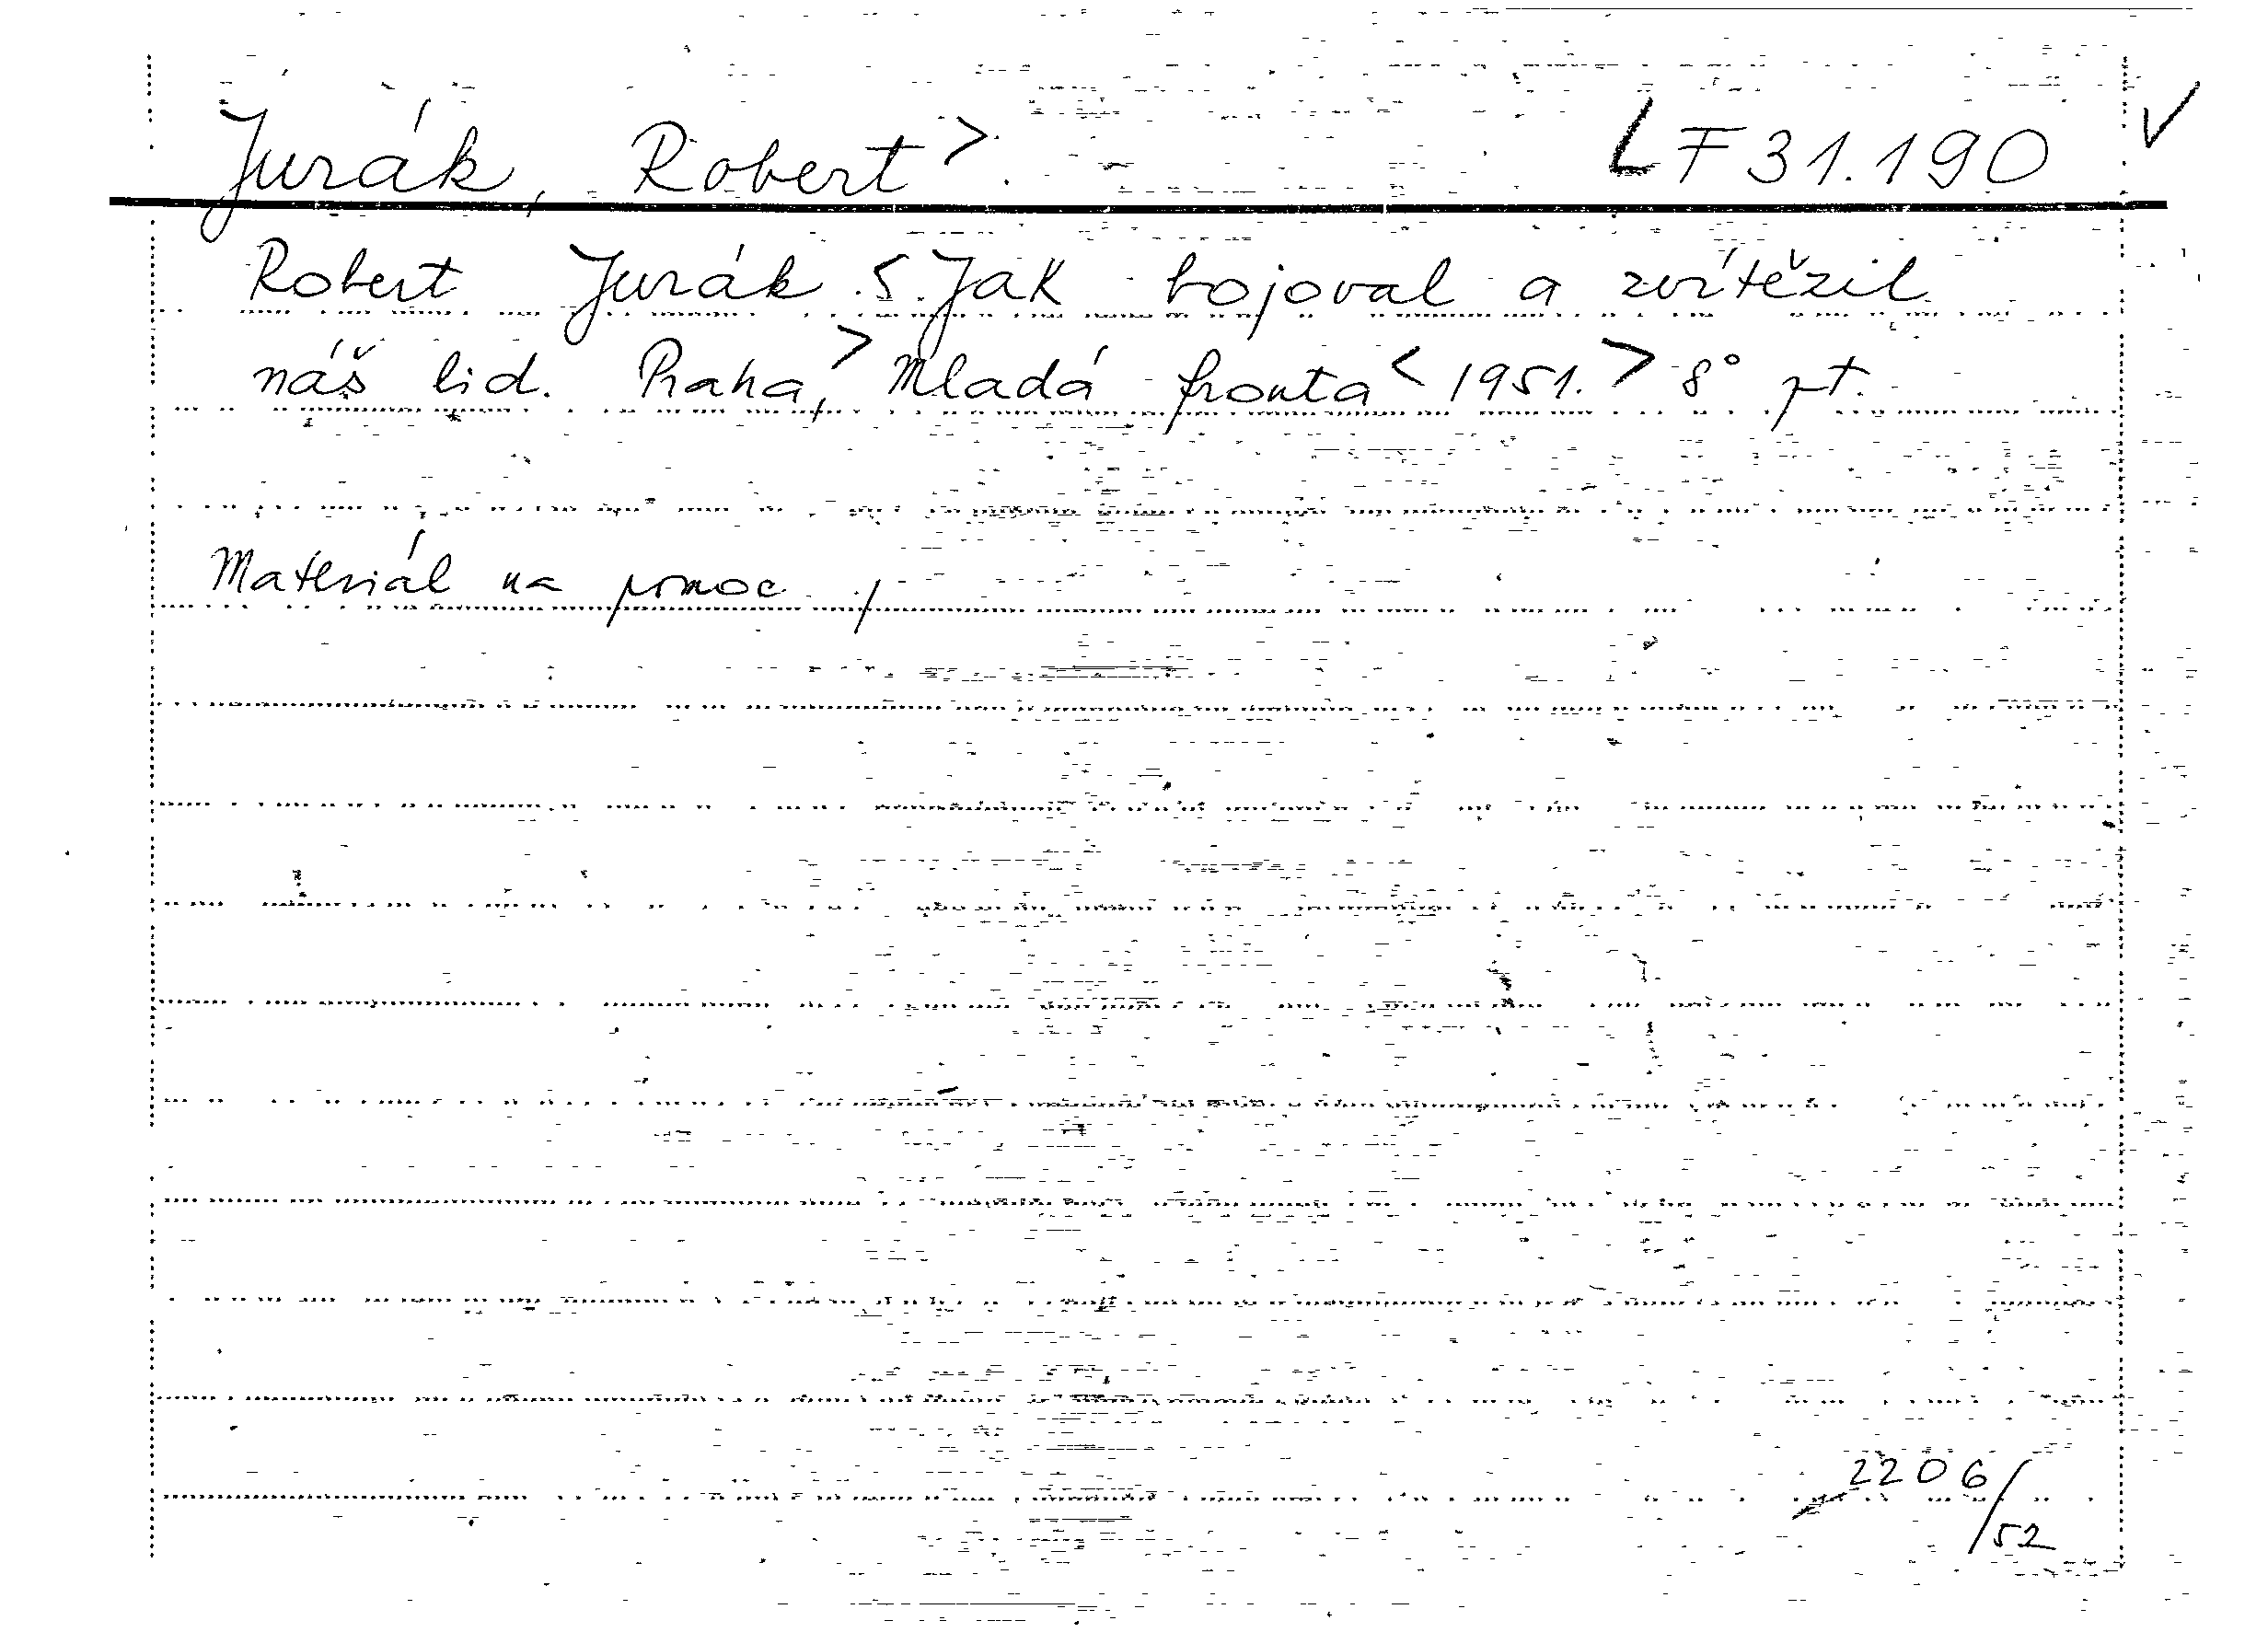 Jurák, Robert > L F 31.190 ✓
Robert Jurák. < Jak bojoval a zvítězil
náš lid. Praha, > Mladá fronta < 1951. > 8° pt.
Materiál na pomoc /
2206/52